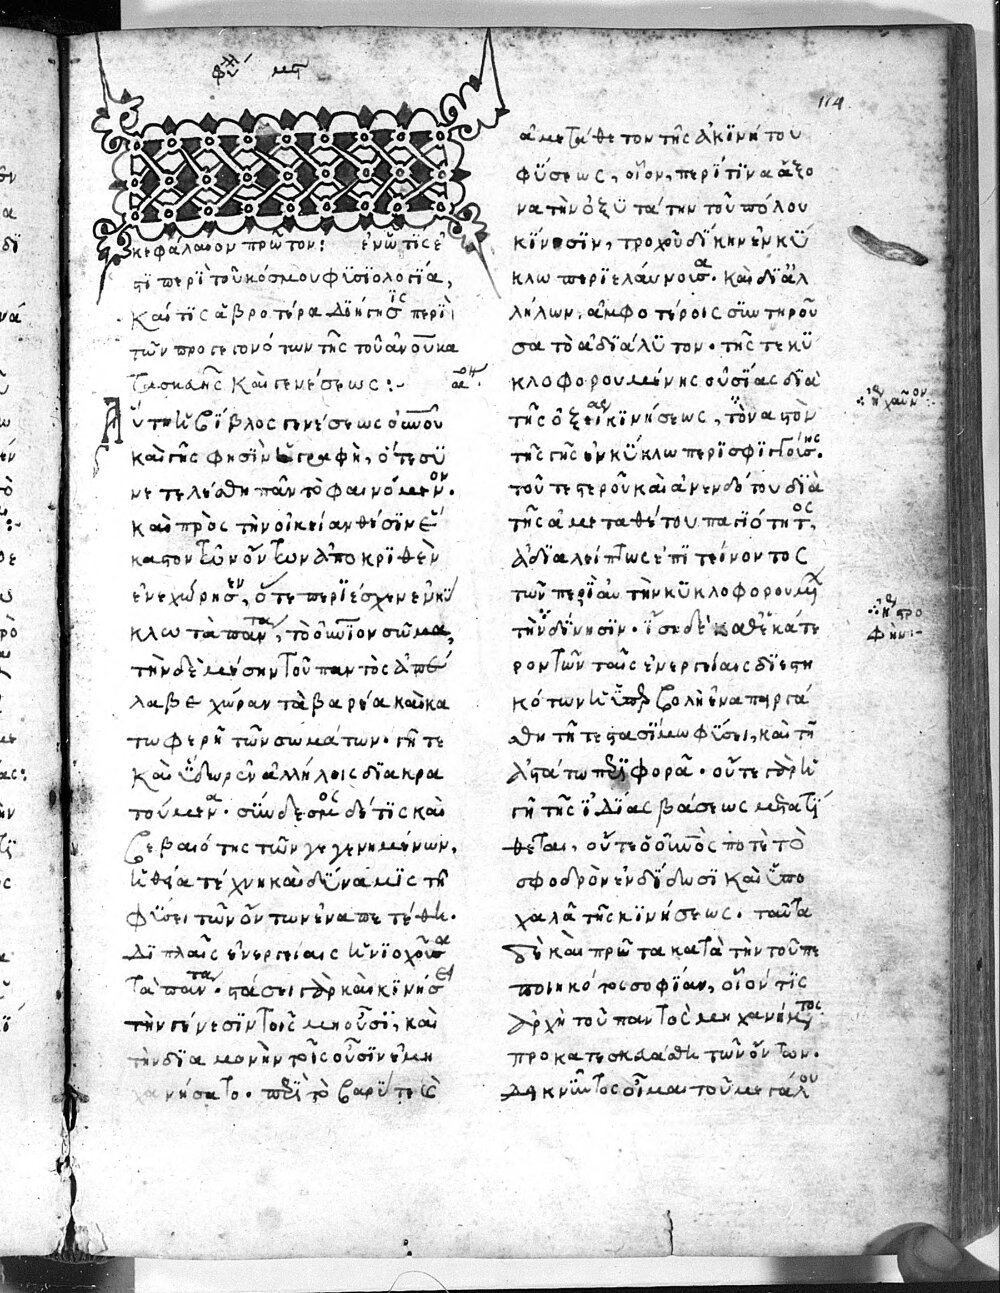 κεφάλαιον πρῶτον: ἐν ᾧ τίς ἐ
στι περὶ τοῦ κόσμου φυσιολογία,
καί τις ἁβροτέρα διήγησις περὶ
τῶν προγεγονότων τῆς τοῦ ἀνου κα
τασκευῆς καὶ γενέσεως:
Αὕτη ἡ βίβλος γενέσεως οὐνοῦ
καὶ γῆς φησὶν ἡ γραφὴ, ὅτε συ
νετελέσθη πᾶν τὸ φαινόμενον.
καὶ πρὸς τὴν οἰκείαν θέσιν ἕ
καστον τῶν ὄντων ἀποκριθὲν
ἐνεχώρησεν, ὅτε περιέσχεν ἐν κύ
κλω τὰ πάντα, τὸ οὐνιον σῶμα,
τὴν δὲ μέσην τοῦ παντὸς ἀπέ
λαβε χώραν τὰ βαρέα καὶ κα
τωφερῆ τῶν σωμάτων. γῆ τε
καὶ ὕδωρ ἐν ἀλλήλοις διακρα
τούμενα. σύνδεσμος δέ τις καὶ
βεβαιότης τῶν γεγενημένων,
ἡ θεία τέχνη καὶ δύναμις τῆ
φύσει τῶν ὄντων ἐναπετέθη.
διπλαῖς ἐνεργείαις ἡνιοχοῦσα
τὰ πάντα. στάσει γὰρ καὶ κινήσει
τὴν γένεσιν τοῖς μὴ οὖσι, καὶ
τὴν διαμονὴν τοῖς οὖσιν ἐμη
χανήσατο. περὶ τὸ βαρύ τε καὶ
114
ἀμετάθετον τῆς ἀκινήτου
φύσεως, οἷον, περί τινα ἄξο
να τὴν ὀξυτάτην τοῦ πόλου
κίνησιν, τροχοῦ δίκην ἐν κύ
κλω περιελάυνουσα. καὶ δι ἀλ
λήλων, ἀμφοτέροις συντηροῦ
σα τὸ ἀδιάλυτον. τῆς τε κυ
κλοφορουμένης οὐσίας διὰ
τῆς ὀξείας κινήσεως, τὸ ναστὸν
τῆς γῆς ἐν κύκλω περισφιγγούσης.
τοῦ τε στεροῦ καὶ ἀνενδότου διὰ
τῆς ἀμεταθέτου παγιότητος,
ἀδιαλείπτως ἐπιτείνοντος
τῶν περὶ αὐτὴν κυκλοφορουμένων
τὴν δίνησιν. ἴση δὲ καθ ἑκάτε
ρον τῶν ταῖς ἐνεργείαις διεστη
κότων ἡ ὑπερβολὴ ἐναπειργά
σθη τῆ τε στασίμω φύσει, καὶ τῆ
ἀστάτω περιφορᾶ. οὔτε γὰρ ἡ
γῆ τῆς ἰδίας βάσεως μετατί
θεται, οὔτε ὁ οὐνὸς ποτὲ τὸ
σφοδρὸν ἐνδίδωσι καὶ ὑπο
χαλᾶ τῆς κινήσεως. ταῦτα
δὲ καὶ πρῶτα κατὰ τὴν τοῦ πε
ποιηκότος σοφίαν, οἷόν τις
ἀρχὴ τοῦ παντὸς μηχανήματος
προκατεσκευάσθη τῶν ὄντων.
δεικνύντος οἶμαι τοῦ μεγάλου